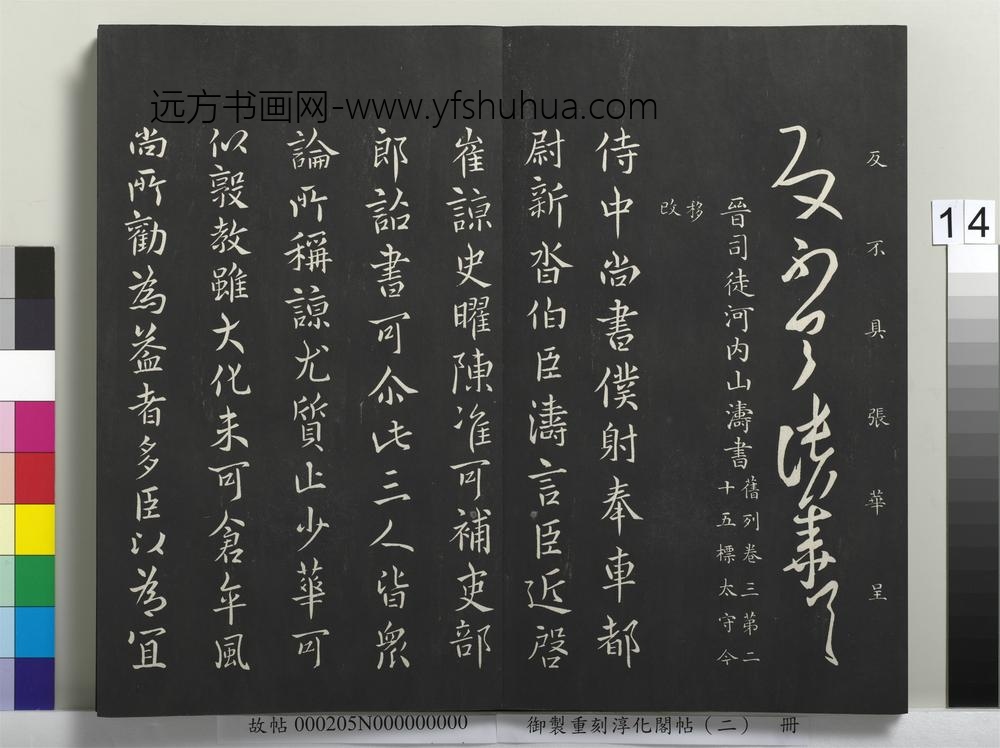 远方书画网-www.yfshuhua.com
反不具張華呈
反不具張華呈
晉司徒河内山濤書
舊列卷三第二
十五標太守今
移
改
侍中尚書僕射奉車都
尉新沓伯臣濤言臣近啓
崔諒史曜陳准可補吏部
郎詔書可尒此三人皆衆
論所稱諒尤質止少華可
以敦教雖大化未可倉卒風
尚所勸為益者多臣以為宜
14
故帖 000205N000000000 御製重刻淳化閣帖（二） 冊